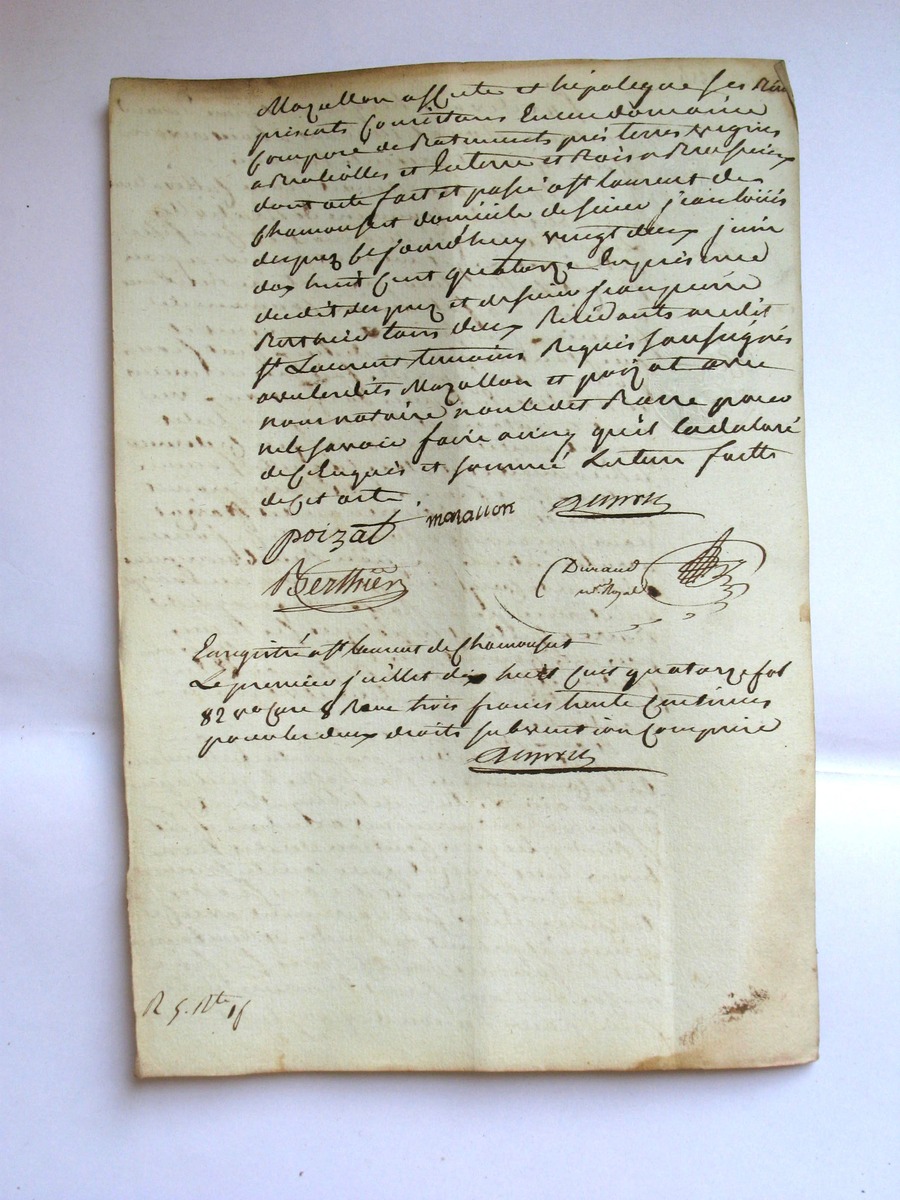 Mazallon affecte et hipoteque ses biens
presents consistans en un domaine
composé de batiments prés terres vignes
et terre et bois a Brussieux
dont acte fait et passé a st Laurent de
Chamousset domicile de sieur jean louis
desprez cejourd'huy vingt deux juin
dix huit cent quatorze en présence
dudit desprez et de sieur jean pierre
Berthier tous deux Residants audit
st Laurent temoins Requis soussignés
avec lesdits Mazallon et poizat avec
nous notaire non ledit Barre pour
ne le savoir faire ainsy qu'il la declaré
de ce Requis et sommé Lecture faitte
de cet acte
poizat mazallon
Berthier
Durand
nre Royal
Enregistré a st Laurent de Chamousset
Le premier juillet dix huit cent quatorze fol
82 vo case 8 Reçu trois francs trente centimes
pour les deux droits subvention comprise